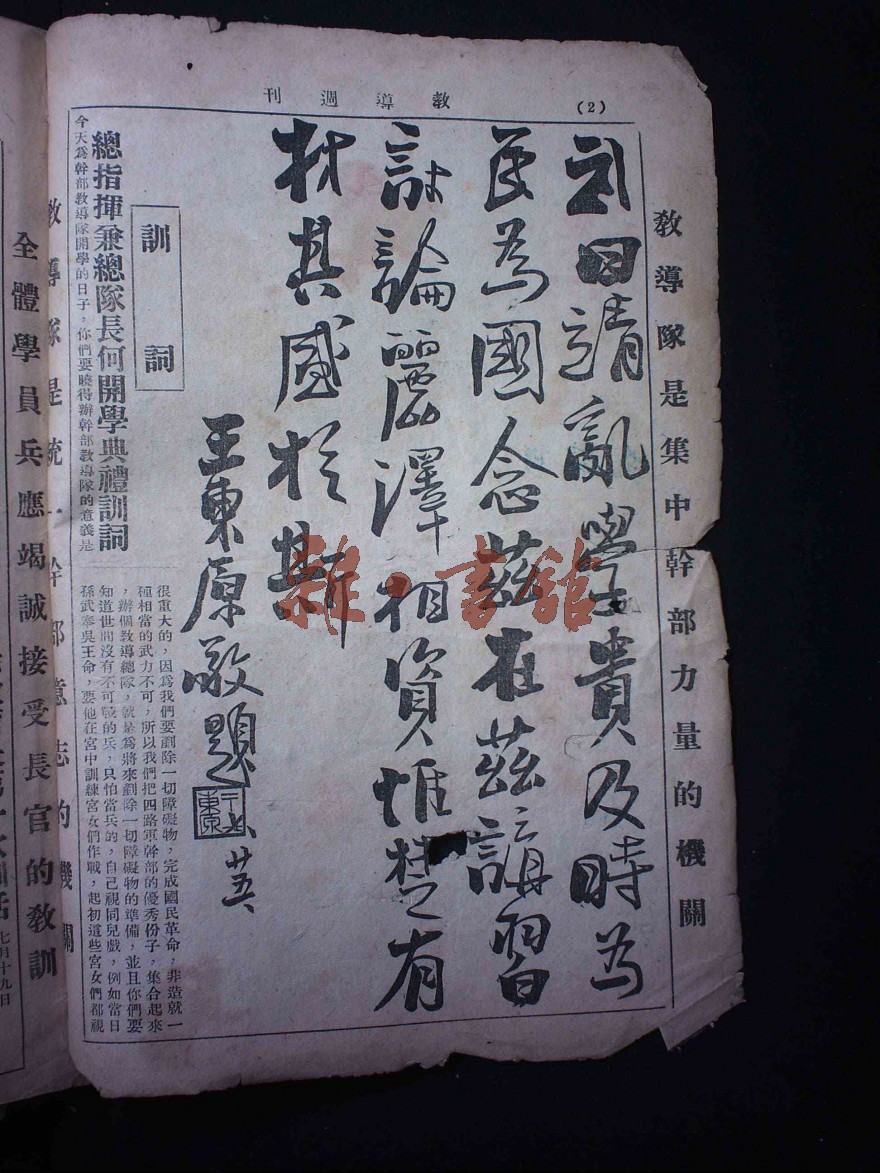 教導週刊
(2)
教導隊是集中幹部力量的機關
戡曰靖亂學貴及時為
民為國念茲在茲講習
討論麗澤相資惟楚有
材其盛於斯
王東原敬題
王東原
廿五
訓詞
總指揮兼總隊長何開學典禮訓詞
今天爲幹部教導隊開學的日子，你們要曉得辦幹部教導隊的意義是
很重大的，因爲我們要剷除一切障礙物，完成國民革命，非造就一
種相當的武力不可，所以我們把四路軍幹部的優秀份子，集合起來
，辦個教導總隊，就是爲將來剷除一切障礙物的準備，並且你們要
知道世間沒有不可戰的兵，只怕當兵的，自己視同兒戲，例如當日
孫武奉吳王命，要他在宮中訓練宮女們作戰，起初這些宮女們都視
教導隊是統一幹部意志的機關
全體學員兵應竭誠接受長官的教訓
七月十九日
雜·書館